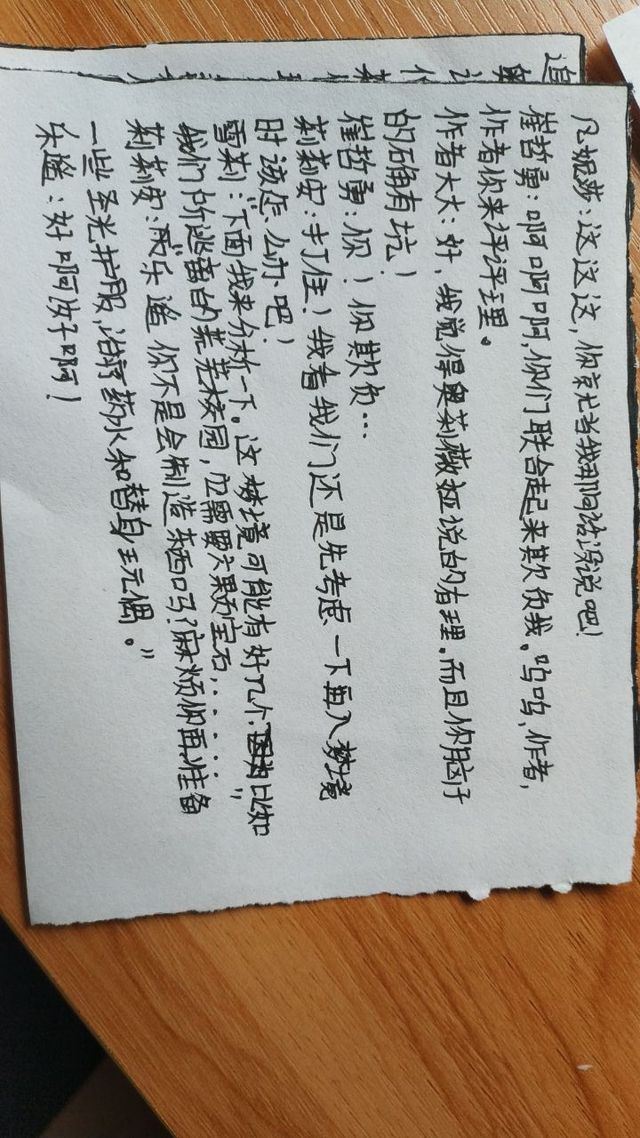 凡妮莎：这这这，你就当我那句话没说吧！
崔哲勇：啊啊啊，你们联合起来欺负我。呜呜，作者，
作者你来评评理。
作者大大：好，我觉得奥莉薇娅说的有理。而且你脑子
的确有坑！
崔哲勇：你！你欺负…
莉莉安：打住！我看我们还是先考虑一下再入梦境
时该怎么办吧！
雪莉：“下面我来分析一下。这梦境可能有好几个，比如
我们所逃离的荒芜校园，应需要六颗宝石……”
莉莉安：“乐遥，你不是会制造东西吗？麻烦你再准备
一些圣光护服，治疗药水和替身玩偶。”
乐遥：好啊好啊！